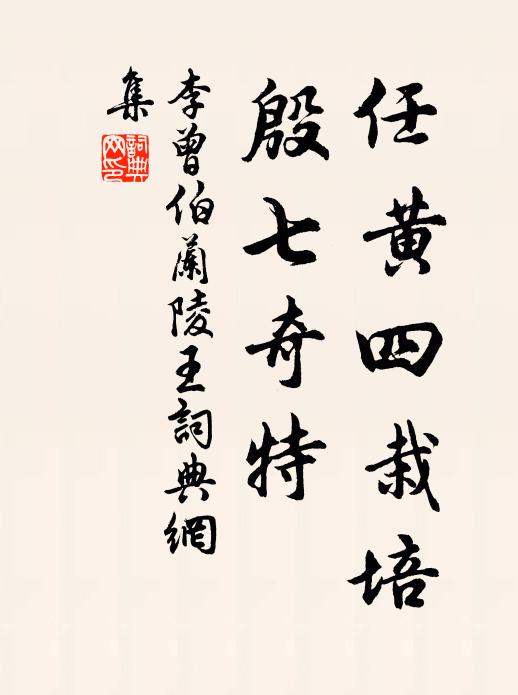 任黄四栽培
殷七奇特
李曾伯蘭陵王詞典網
集
詞典網印